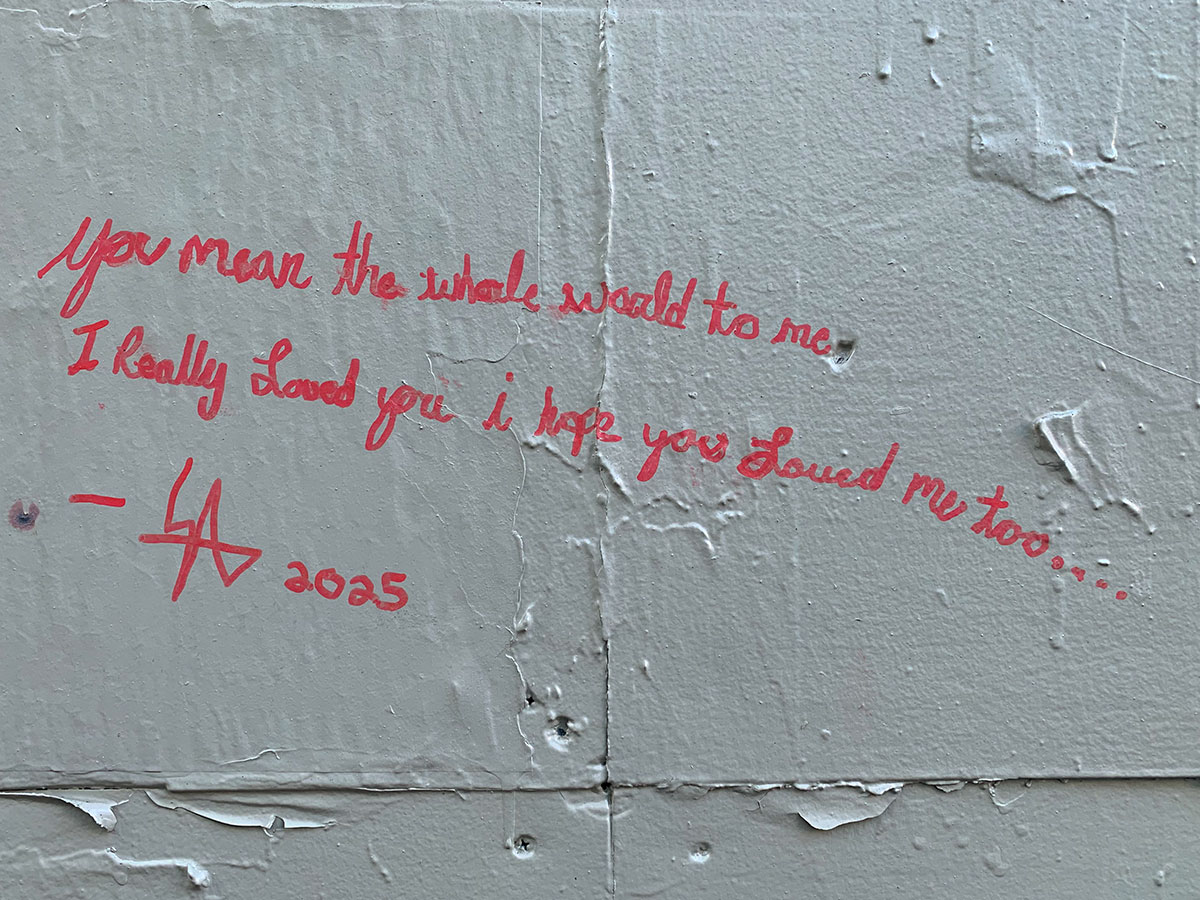 you mean the whole world to me.
I Really Loved you i hope you Loved me too....
2025